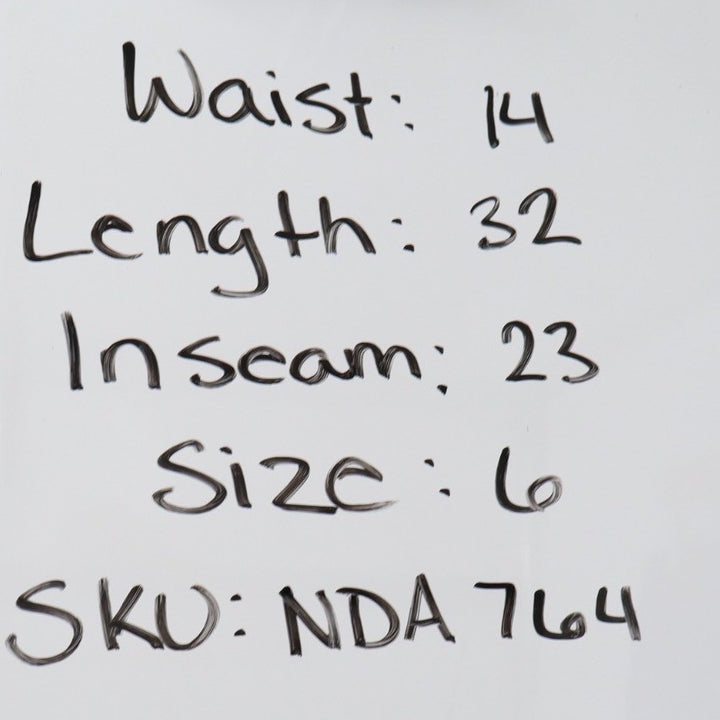 Waist: 14
Length: 32
Inseam: 23
Size: 6
SKU: NDA 764